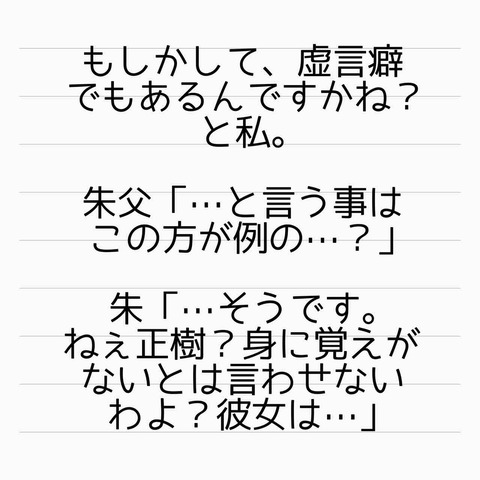 もしかして、虚言癖
でもあるんですかね？
と私。
朱父「…と言う事は
この方が例の…？」
朱「…そうです。
ねぇ正樹？身に覚えが
ないとは言わせない
わよ？彼女は…」